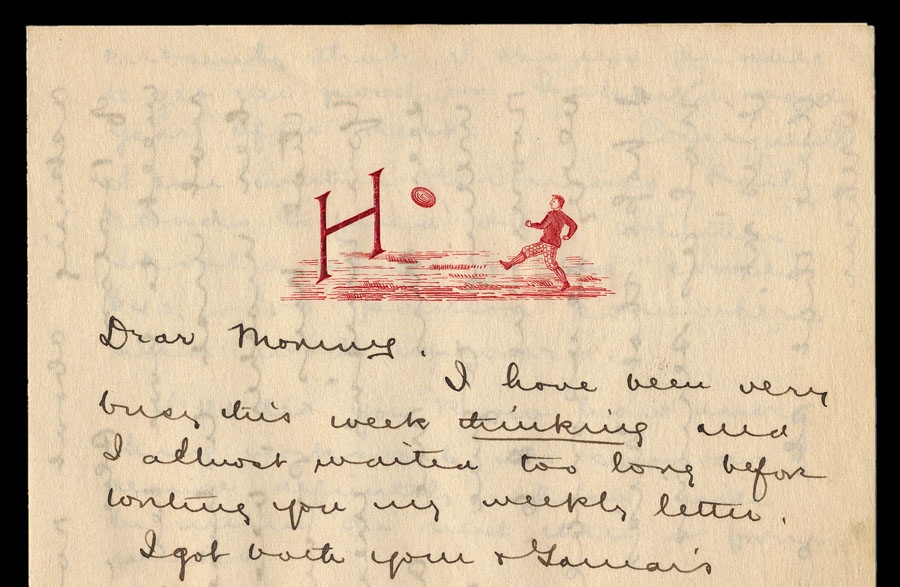 H
Dear Mommy.
I have been very
busy this week thinking and
I allmost waited too long before
writing you my weekly letter.
I got both your &